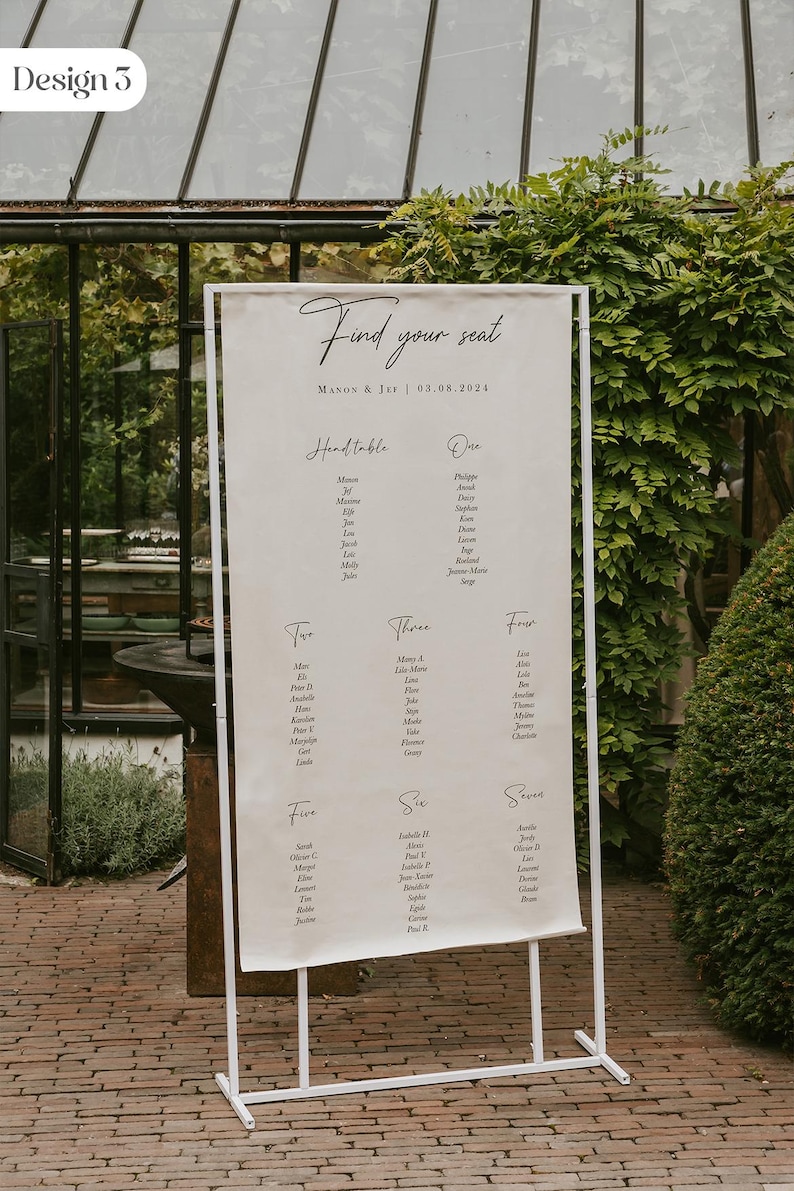 Design 3
Find your seat
Manon & Jef | 03.08.2024
Head table
Manon
Jef
Maxime
Elfe
Jan
Lou
Jacob
Loïc
Molly
Jules
One
Philippe
Anouk
Daisy
Stephan
Koen
Diane
Lieven
Inge
Roeland
Jeanne-Marie
Serge
Two
Marc
Els
Peter D.
Anabelle
Hans
Karolien
Peter V.
Marjolijn
Gert
Linda
Three
Mamy A.
Lila-Marie
Lina
Flore
Joke
Stijn
Moeke
Vake
Florence
Grany
Four
Lisa
Aloïs
Lola
Ben
Ameline
Thomas
Mylène
Jeremy
Charlotte
Five
Sarah
Olivier C.
Margot
Eline
Lennert
Tim
Robbe
Justine
Six
Isabelle H.
Alexis
Paul V.
Isabelle P.
Jean-Xavier
Bénédicte
Sophie
Egide
Carine
Paul R.
Seven
Aurélie
Jordy
Olivier D.
Lies
Laurent
Dorine
Glauke
Bram